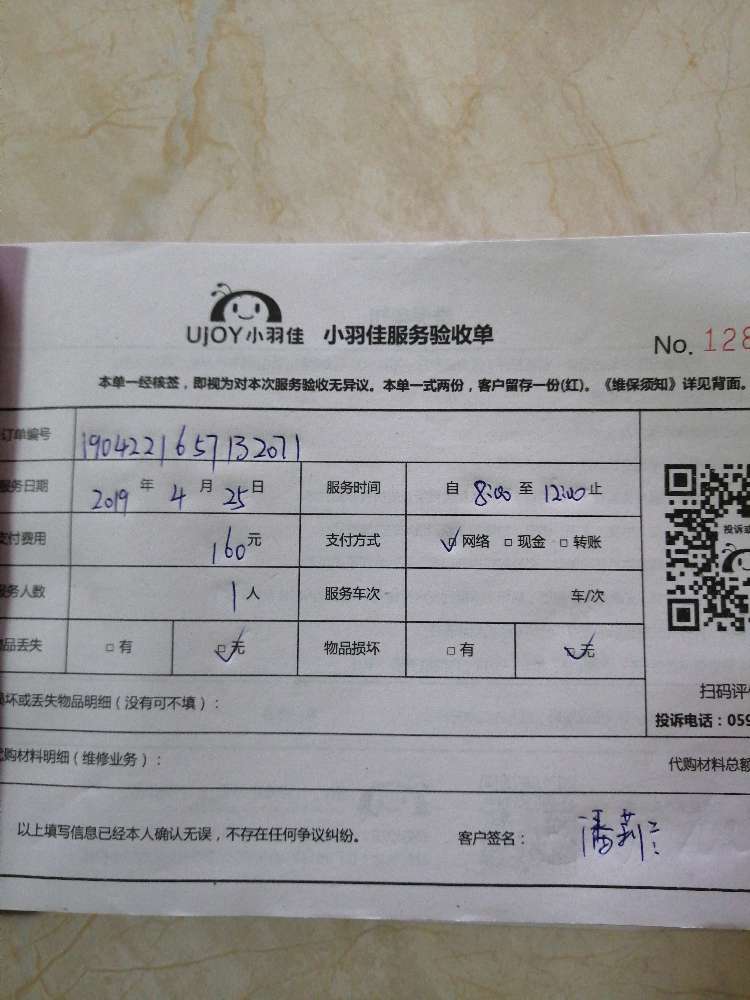 UJOY小羽佳 小羽佳服务验收单
No. 128
本单一经核签，即视为对本次服务验收无异议。本单一式两份，客户留存一份(红)。《维保须知》详见背面。
订单编号 1904221657132071
服务日期 2019 年 4 月 25 日 服务时间 自 8:00 至 12:00 止
支付费用 160 元 支付方式 ☑ 网络 □ 现金 □ 转账
服务人数 1 人 服务车次 车/次
物品丢失 □ 有 ☑ 无 物品损坏 □ 有 ☑ 无
投诉或
扫码评价
损坏或丢失物品明细（没有可不填）：
投诉电话：059
代购材料明细（维修业务）：
代购材料总额
以上填写信息已经本人确认无误，不存在任何争议纠纷。 客户签名： 潘莉